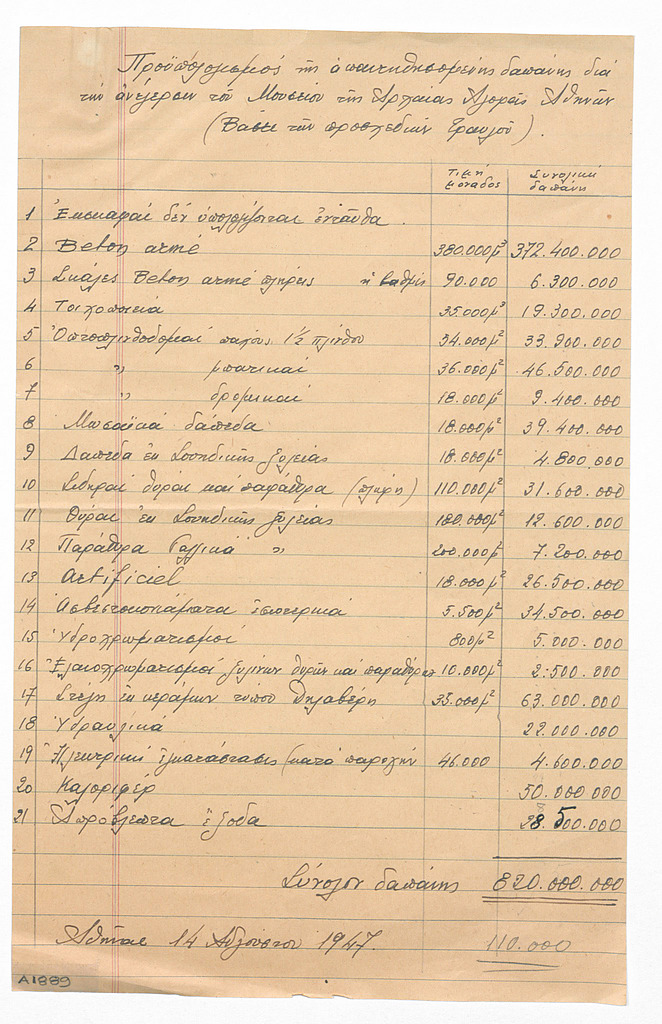 Προϋπολογισμός τῆς ἀπαιτηθησομένης δαπάνης διά
τήν ἀνέγερσιν τοῦ Μουσείου τῆς Ἀρχαίας Ἀγορᾶς Ἀθηνῶν
(Βάσει τῶν προσχεδίων Τραυλοῦ).
Τιμή μονάδος Συνολική δαπάνη
1 Ἐκσκαφαί δέν ὑπολογίζονται ἐνταῦθα
2 Beton armé 380.000μ³ 372.400.000
3 Σκάλες Beton armé πλήρεις ἡ βαθμίς 90.000 6.300.000
4 Τοιχοποιεία 35.000μ³ 19.300.000
5 Ὀπτοπλινθοδομαί πάχους 1½ πλίνθου 34.000μ² 33.900.000
6 〃 μπατικαί 36.000μ² 46.500.000
7 〃 δρομικαί 18.000μ² 9.400.000
8 Μωσαϊκά δάπεδα 18.000μ² 39.400.000
9 Δάπεδα ἐκ Σουηδικῆς ξυλείας 18.000μ² 4.800.000
10 Σιδηραί θύραι και παράθυρα (πλήρη) 110.000μ² 31.600.000
11 Θύραι ἐκ Σουηδικῆς ξυλείας 180.000μ² 12.600.000
12 Παράθυρα Γαλλικά 〃 200.000μ² 7.200.000
13 Artificiel 18.000μ² 26.500.000
14 Ἀσβεστοκονιάματα ἐσωτερικά 5.500μ² 34.500.000
15 Ὑδροχρωματισμοί 800μ² 5.000.000
16 Ἐλαιοχρωματισμοί ξυλίνων θυρῶν καί παραθύρων 10.000μ² 2.500.000
17 Στέγη ἐκ κεράμων τύπου Δηλαβέρη 35.000μ² 63.000.000
18 Ὑδραυλικά 22.000.000
19 Ἠλεκτρική ἐγκατάστασις (κατά παροχήν 46.000 4.600.000
20 Καλοριφέρ 50.000.000
21 Ἀπρόβλεπτα ἔξοδα 28.500.000
Σύνολον δαπάνης 820.000.000
Ἀθῆναι 14 Αὐγούστου 1947. 110.000
A1889